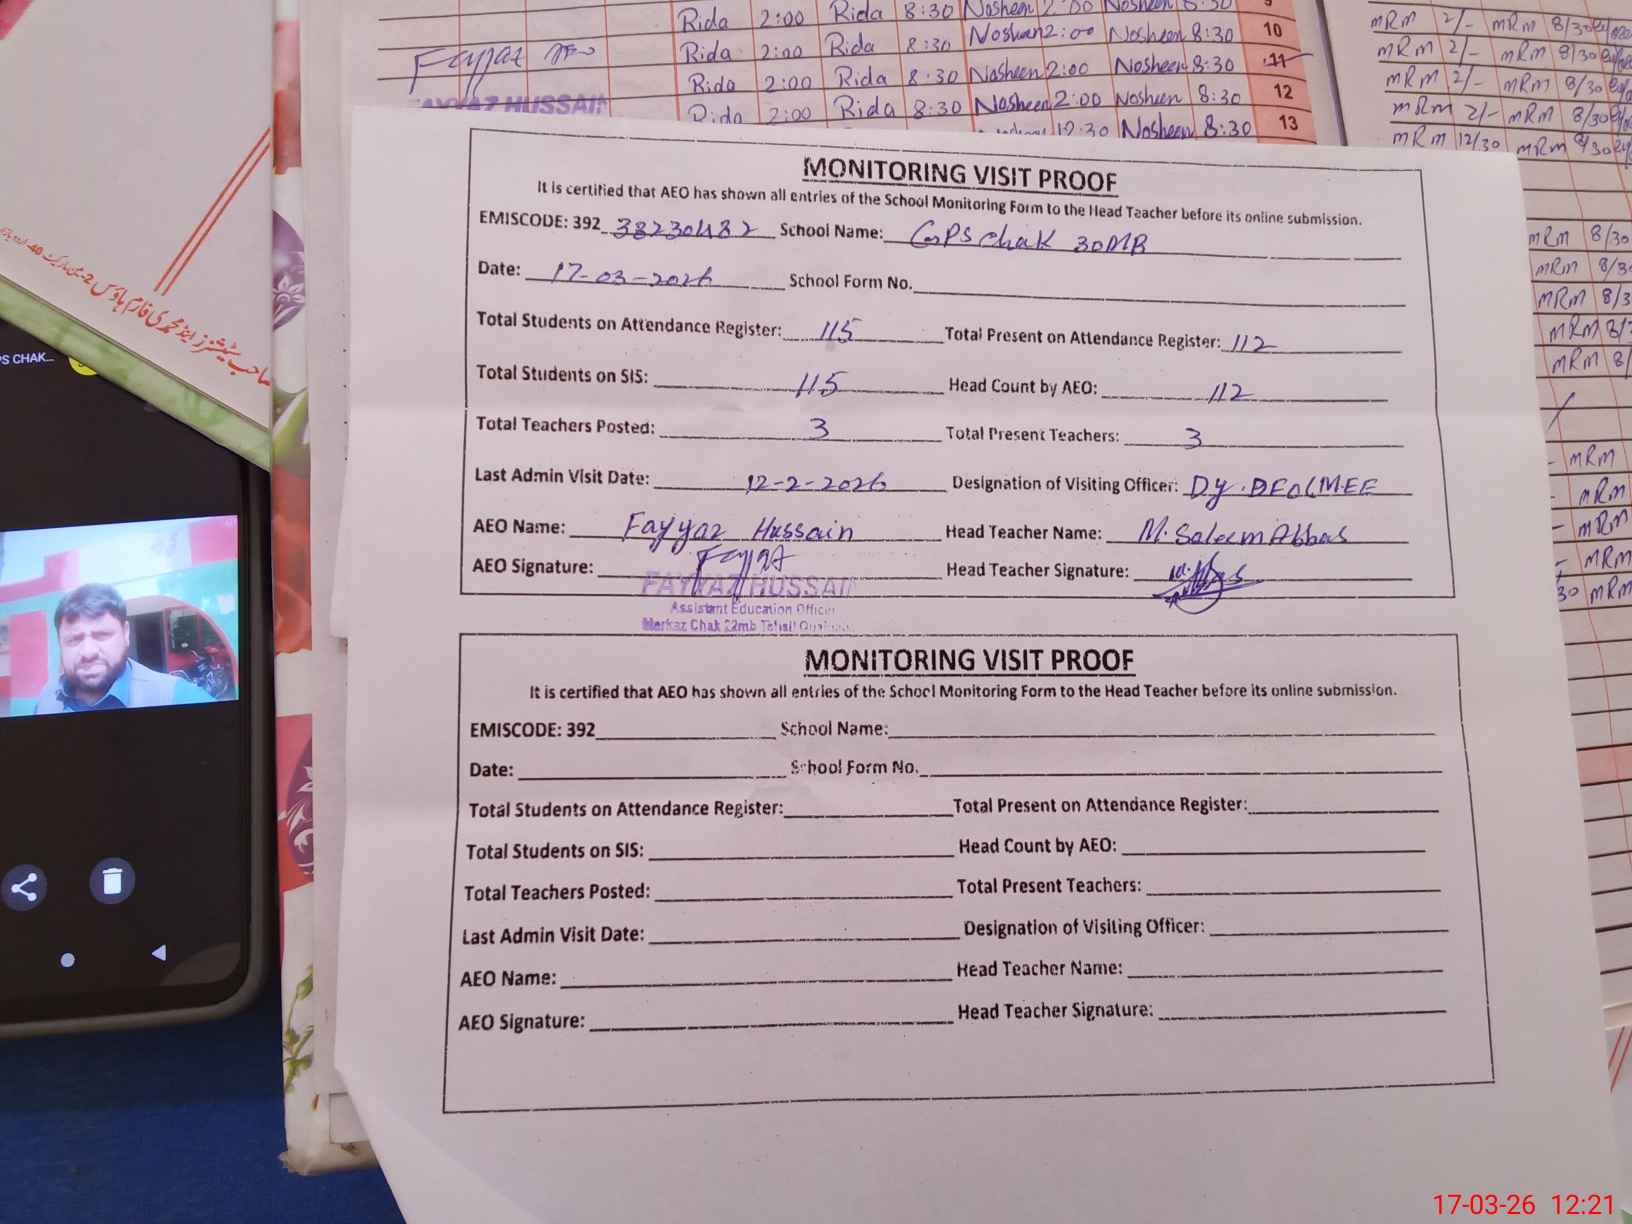 Rida 2:00 Rida 8:30 Nosheen 2:00 Nosheen 8:30
Fayyaz Rida 2:00 Rida 8:30 Nosheen 2:00 Nosheen 8:30 10
Rida 2:00 Rida 8:30 Nosheen 2:00 Nosheen 8:30 11
FAYYAZ HUSSAIN Rida 2:00 Rida 8:30 Nosheen 2:00 Nosheen 8:30 12
12:30 Nosheen 8:30 13
MRM 2/- MRM 8/30
MRM 2/- MRM 8/30
MRM 2/- MRM 8/30
MRM 2/- MRM 8/30
MRM 12/30 MRM 8/30
MRM 8/30
MRM 8/3
MRM 8/3
MRM 8/3
MRM 8/
MRM
MRM
MRM
MRM
30 MRM
PS CHAK...
MONITORING VISIT PROOF
It is certified that AEO has shown all entries of the School Monitoring Form to the Head Teacher before its online submission.
EMISCODE: 392_38230482 School Name: GPS Chak 30MB
Date: 17-03-2026 School Form No.
Total Students on Attendance Register: 115 Total Present on Attendance Register: 112
Total Students on SIS: 115 Head Count by AEO: 112
Total Teachers Posted: 3 Total Present Teachers: 3
Last Admin Visit Date: 12-2-2026 Designation of Visiting Officer: Dy.DEO(MEE
AEO Name: Fayyaz Hussain Head Teacher Name: M.Saleem Abbas
AEO Signature: Fayyaz Head Teacher Signature:
FAYYAZ HUSSAIN
Assistant Education Officer
Markaz Chak 22mb Tehsil
MONITORING VISIT PROOF
It is certified that AEO has shown all entries of the School Monitoring Form to the Head Teacher before its online submission.
EMISCODE: 392 School Name:
Date: School Form No.
Total Students on Attendance Register: Total Present on Attendance Register:
Total Students on SIS: Head Count by AEO:
Total Teachers Posted: Total Present Teachers:
Last Admin Visit Date: Designation of Visiting Officer:
AEO Name: Head Teacher Name:
AEO Signature: Head Teacher Signature:
17-03-26 12:21